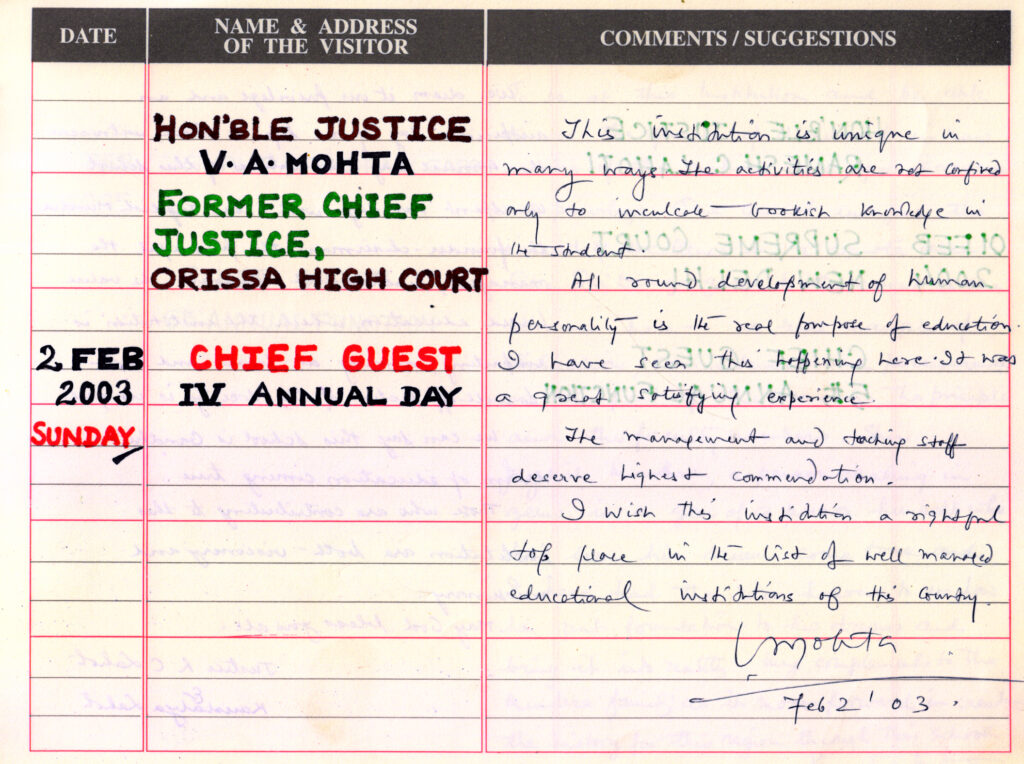 DATE
NAME & ADDRESS
OF THE VISITOR
COMMENTS / SUGGESTIONS
2 FEB
2003
SUNDAY
HON'BLE JUSTICE
V. A. MOHTA
FORMER CHIEF
JUSTICE,
ORISSA HIGH COURT
CHIEF GUEST
IV ANNUAL DAY
This institution is unique in
many ways. The activities are not confined
only to inculcate bookish knowledge in
the student.
All round development of human
personality is the real purpose of education.
I have seen this happening here. It was
a great satisfying experience.
The management and teaching staff
deserve highest commendation.
I wish this institution a rightful
top place in the list of well managed
educational institutions of this country.
Mohta
Feb 2 ' 03.